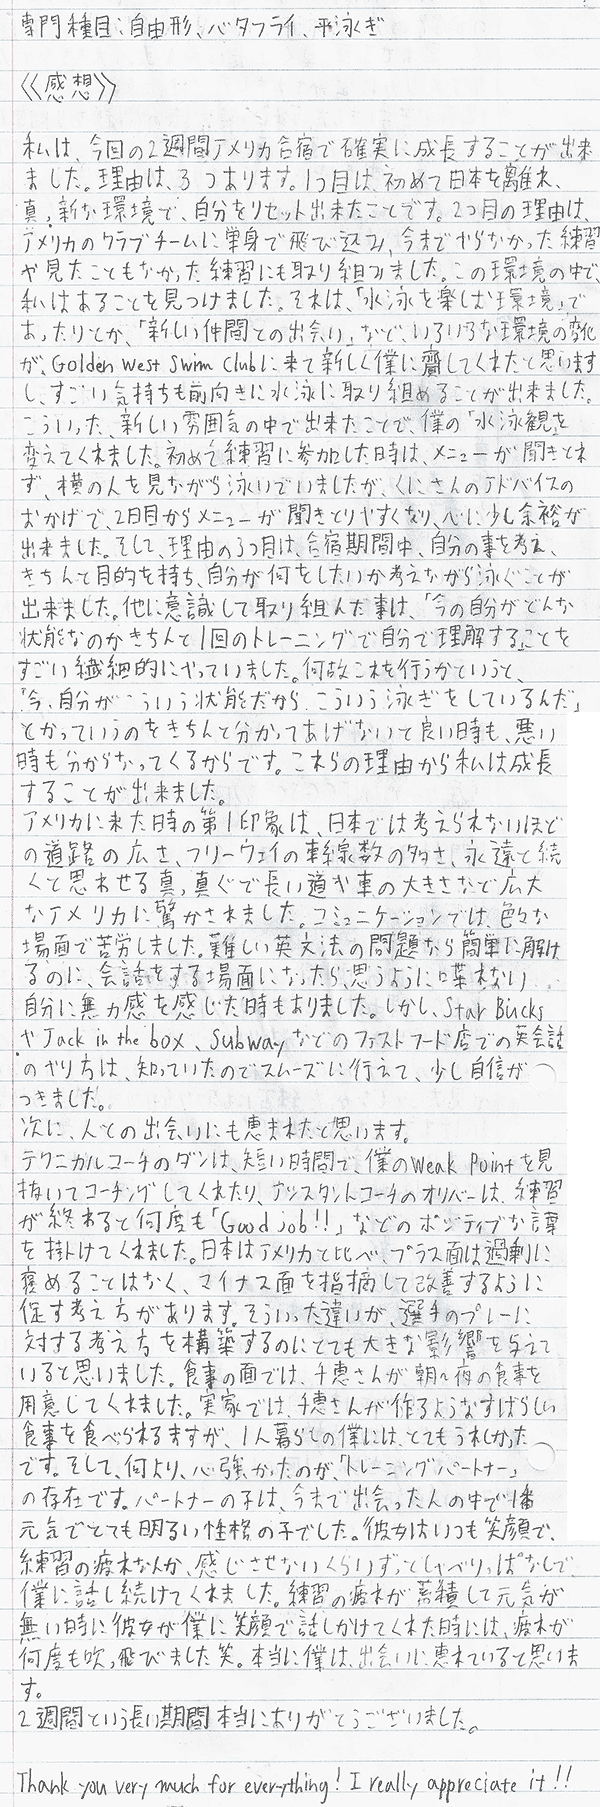 専門種目:自由形、バタフライ、平泳ぎ
《感想》
私は、今回の2週間アメリカ合宿で確実に成長することが出来
ました。理由は、3つあります。1つ目は、初めて日本を離れ、
真っ新な環境で、自分をリセット出来たことです。2つ目の理由は、
アメリカのクラブチームに単身で飛び込み、今までやらなかった練習
や見たこともなかった練習にも取り組みました。この環境の中で、
私はあることを見つけました。それは、「水泳を楽しむ環境」で
あったりとか、「新しい仲間との出会い」など、いろいろな環境の変化
が、Golden West Swim Clubに来て新しく僕に齎してくれたと思います
し、すごい気持ちも前向きに水泳に取り組めることが出来ました。
こういった、新しい雰囲気の中で出来たことで、僕の「水泳観」を
変えてくれました。初めて練習に参加した時は、メニューが聞きとれ
ず、横の人を見ながら泳いでいましたが、くにさんのアドバイスの
おかげで、2日目からメニューが聞きとりやすくなり、心に少し余裕が
出来ました。そして、理由の3つ目は、合宿期間中、自分の事を考え、
きちんと目的を持ち、自分が何をしたいか考えながら泳ぐことが
出来ました。他に意識して取り組んだ事は、「今の自分がどんな
状態なのかきちんと1回のトレーニングで自分で理解する」ことを
すごい繊細的にやっていました。何故これを行うかというと、
「今、自分がこういう状態だから、こういう泳ぎをしているんだ」
とかっていうのをきちんと分かってあげないと良い時も、悪い
時も分からなってくるからです。これらの理由から私は成長
することが出来ました。
アメリカに来た時の第1印象は、日本では考えられないほど
の道路の広さ、フリーウェイの車線数の多さ、永遠と続
くと思わせる真っ真ぐで長い道や車の大きさなど広大
なアメリカに驚かされました。コミュニケーションでは、色々な
場面で苦労しました。難しい英文法の問題なら簡単に解け
るのに、会話をする場面になったら、思うように喋れない
自分に無力感を感じた時もありました。しかし、Star Bucks
やJack in the box、Subwayなどのファストフード店での英会話
のやり方は、知っていたのでスムーズに行えて、少し自信が
つきました。
次に、人との出会いにも恵まれたと思います。
テクニカルコーチのダンは、短い時間で、僕のWeak Pointを見
抜いてコーチングしてくれたり、アシスタントコーチのオリバーは、練習
が終わると何度も「Good job!!」などのポジティブな言葉
を掛けてくれました。日本はアメリカと比べ、プラス面は過剰に
褒めることはなく、マイナス面を指摘して改善するように
促す考え方があります。そういった違いが、選手のプレーに
対する考え方を構築するのにとても大きな影響を与えて
いると思いました。食事の面では、千恵さんが朝〜夜の食事を
用意してくれました。実家では、千恵さんが作るようなすばらしい
食事を食べられるますが、1人暮らしの僕には、とてもうれしかった
です。そして、何より、心強かったのが、「トレーニングパートナー」
の存在です。パートナーの子は、今まで出会った人の中で1番
元気でとても明るい性格の子でした。彼女はいつも笑顔で、
練習の疲れなんか、感じさせないくらいずっとしゃべりっぱなしで、
僕に話し続けてくれました。練習の疲れが蓄積して元気が
無い時に彼女が僕に笑顔で話しかけてくれた時には、疲れが
何度も吹っ飛びました笑。本当に僕は、出会いに恵れていると思いま
す。
2週間という長い期間本当にありがとうございました。
Thank you very much for everything! I really appreciate it!!